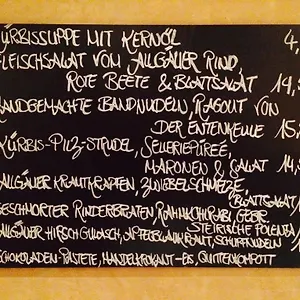 ÜRBISSUPPE MIT KERNÖL 4,
FLEISCHSALAT VOM ALLGÄUER RIND,
ROTE BEETE & BLATTSALAT 14,
HANDGEMACHTE BANDNUDELN, RAGOUT VON
DER ENTENKEULE 15,
KÜRBIS-PILZ-STRUDEL, SELLERIEPÜREE,
MARONEN & SALAT 14,
ALLGÄUER KRAUTKRAPFEN, ZWIEBELSCHMELZE,
BLATTSALAT 1
GESCHMORTER RINDERBRATEN, RAHMKOHLRABI, GEBR.
STEIRISCHE POLENTA 1
ALLGÄUER HIRSCHGULASCH, APFELBLAUKRAUT, SCHUPFNUDELN 1
SCHOKOLADEN-PASTETE, MANDELKROKANT-EIS, QUITTENKOMPOTT